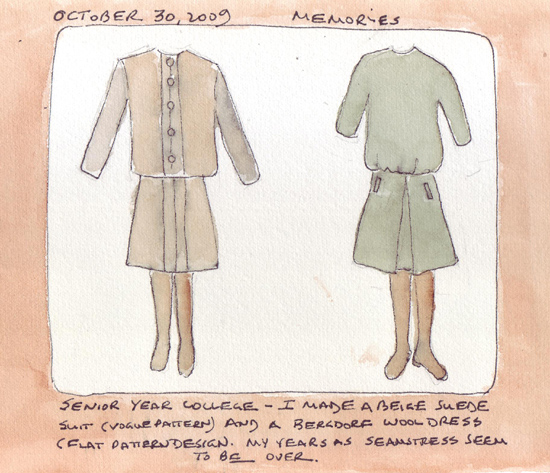 OCTOBER 30, 2009 MEMORIES
SENIOR YEAR COLLEGE - I MADE A BEIGE SUEDE
SUIT (VOGUE PATTERN) AND A BERGDORF WOOL DRESS
(FLAT PATTERN DESIGN. MY YEARS AS SEAMSTRESS SEEM
TO BE OVER.